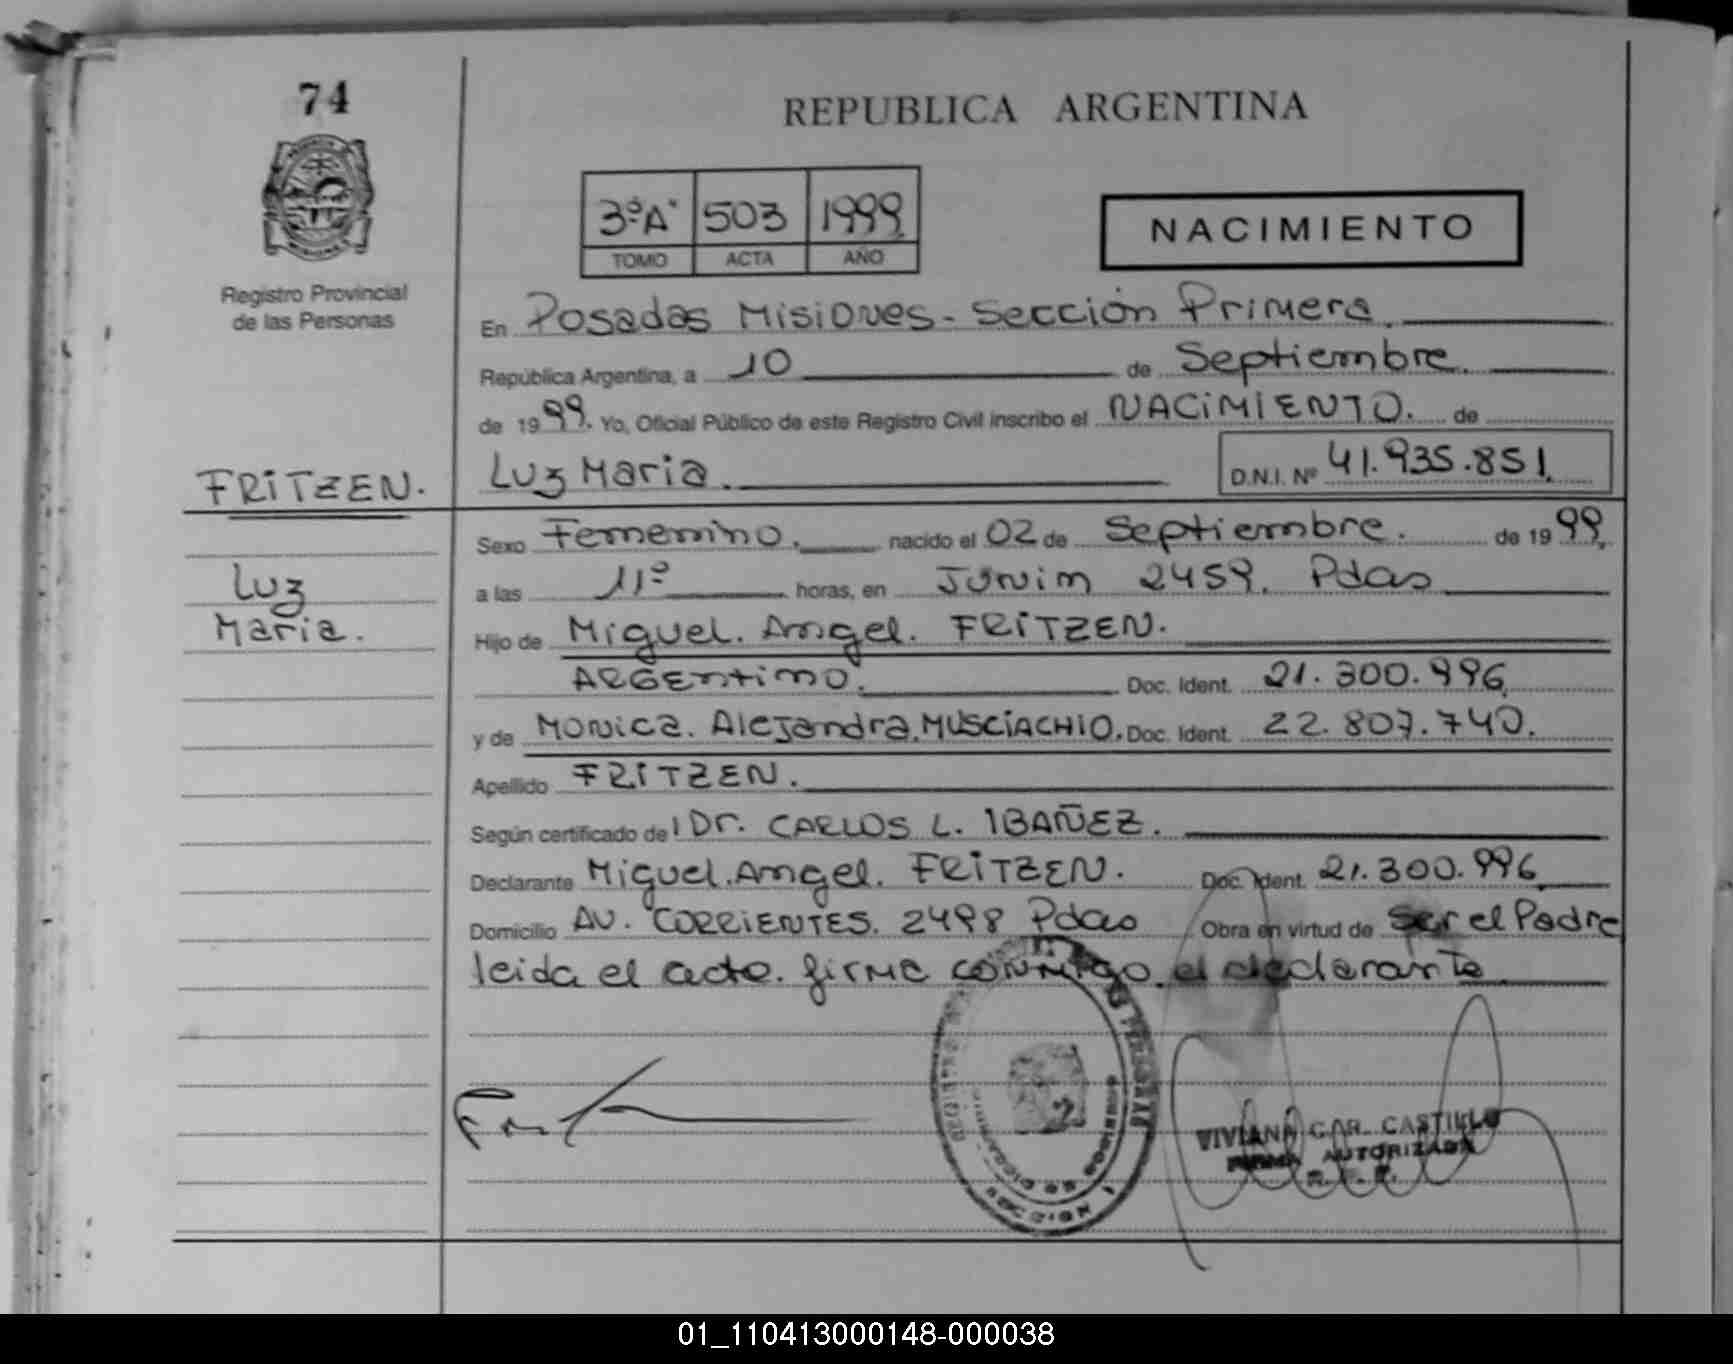 74
REPUBLICA ARGENTINA
3ºA" 503 1999
TOMO ACTA AÑO
NACIMIENTO
Registro Provincial
de las Personas
En Posadas Misiones - Sección Primera
República Argentina, a 10 de Septiembre.
de 1999. Yo, Oficial Público de este Registro Civil inscribo el NACIMIENTO. de
Luz Maria. D.N.I. Nº 41.935.851
FRITZEN.
Luz
Maria.
Sexo Femenino. nacido el 02 de Septiembre. de 1999
a las 11º horas, en Junin 2459. Pdas
Hijo de Miguel. Angel. FRITZEN.
ARGENtino. Doc. Ident. 21.300.996
y de Monica. Alejandra. MUSCIACHIO. Doc. Ident. 22.807.740.
Apellido FRITZEN.
Según certificado de l Dr. CARLOS L. IBAÑEZ.
Declarante Miguel. Angel. FRITZEN. Doc. Ident. 21.300.996
Domicilio AV. CORRIENTES. 2498 Pdas Obra en virtud de Ser el Padre
leida el acta. firma conmigo el declarante
VIVIANA CAR. CASTILLO
FIRMA AUTORIZADA
SECCION 1
01_110413000148-000038